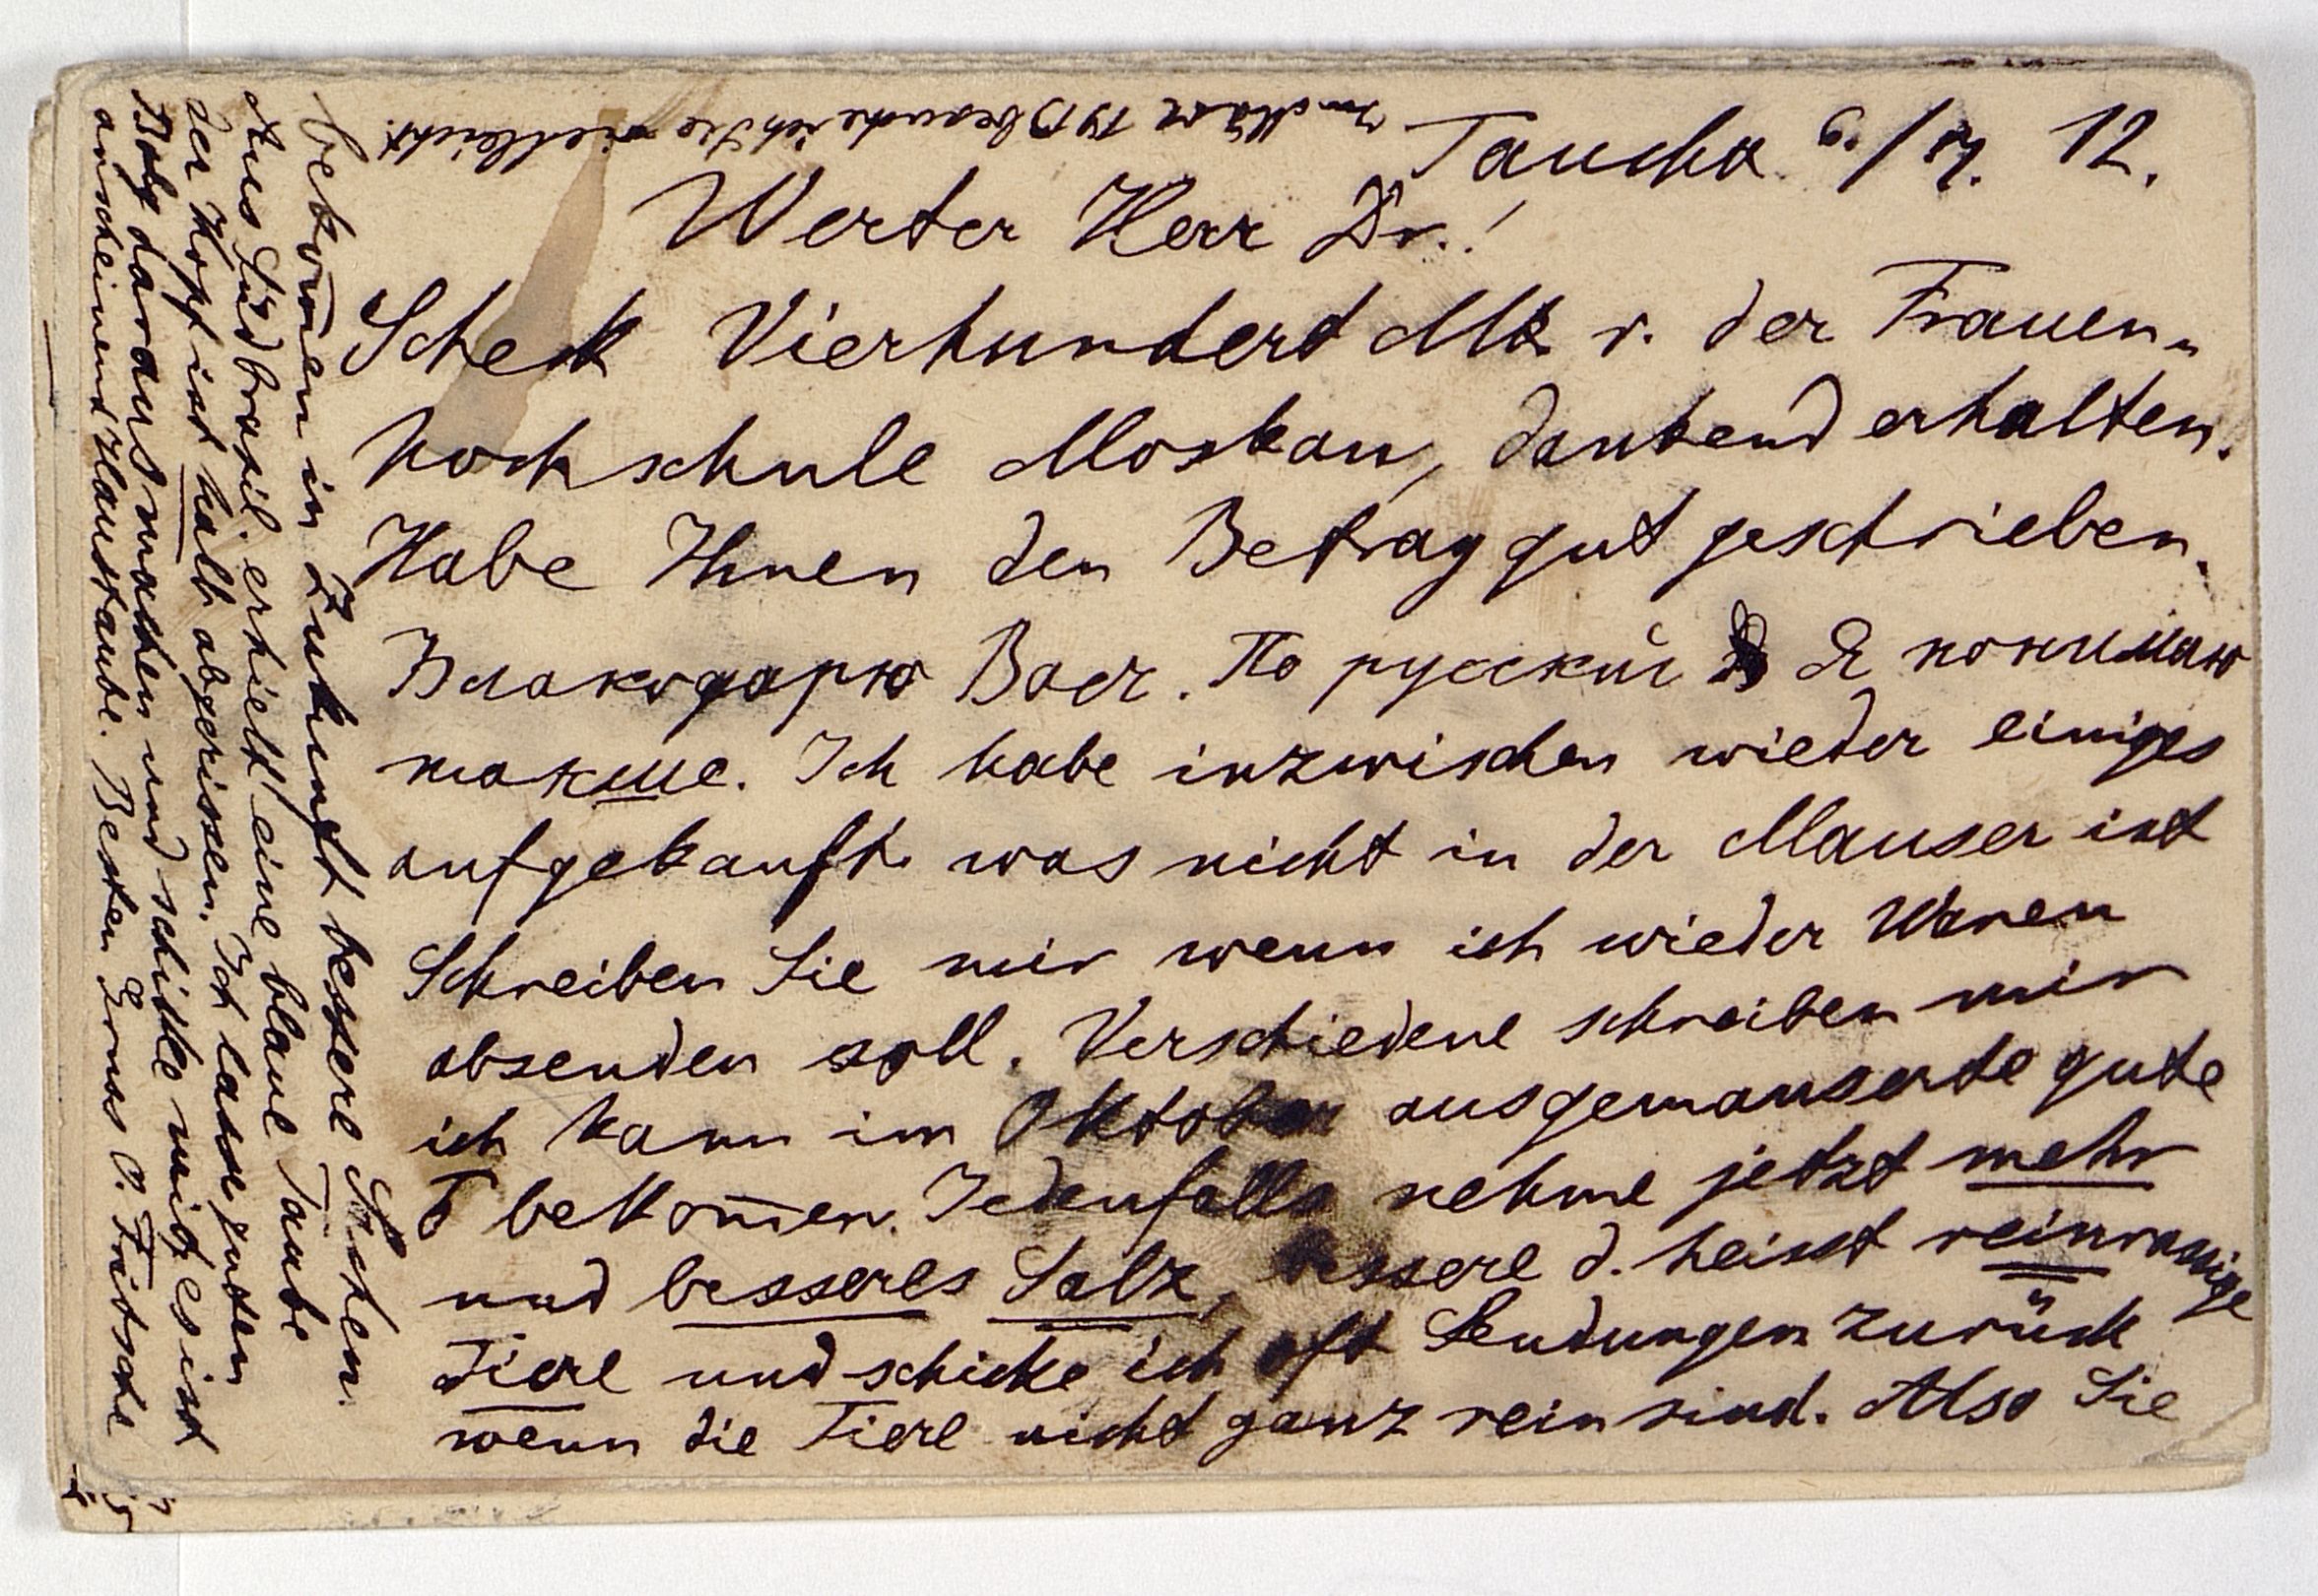 Taucha 6./9. 12.
Werter Herr Dr.!
Scheck Vierhundert Mk v. der Frauen-
hochschule Moskau, dankend erhalten.
Habe Ihnen den Betrag gut geschrieben.
Благодарю Вас. По русский Я понимаю
Ich habe inzwischen wieder einiges
aufgekauft was nicht in der Mauser ist
Schreiben Sie mir wenn ich wieder Ihnen
absenden soll. Verschiedene schreiben mir
ich kann im Oktober ausgemauserte gute
T bekom̄en. Jedenfalls nehme jetzt mehr
und besseres Salz, bessere d. heisst reinrassige
Tiere und schicke ich oft Sendungen zurück
wenn die Tiere nicht ganz rein sind. Also Sie
bekom̄en in Zukunft bessere Sachen.
Aus Südbrasil. erhielt eine blaue Taube
der Kopf ist halb abgerissen. Ich lasse guten
Balg daraus machen und schicke mit, es ist
anscheinend Haustaube. Besten Gruss O. Fritsche
Im März 1913 besuche ich Sie vielleicht.